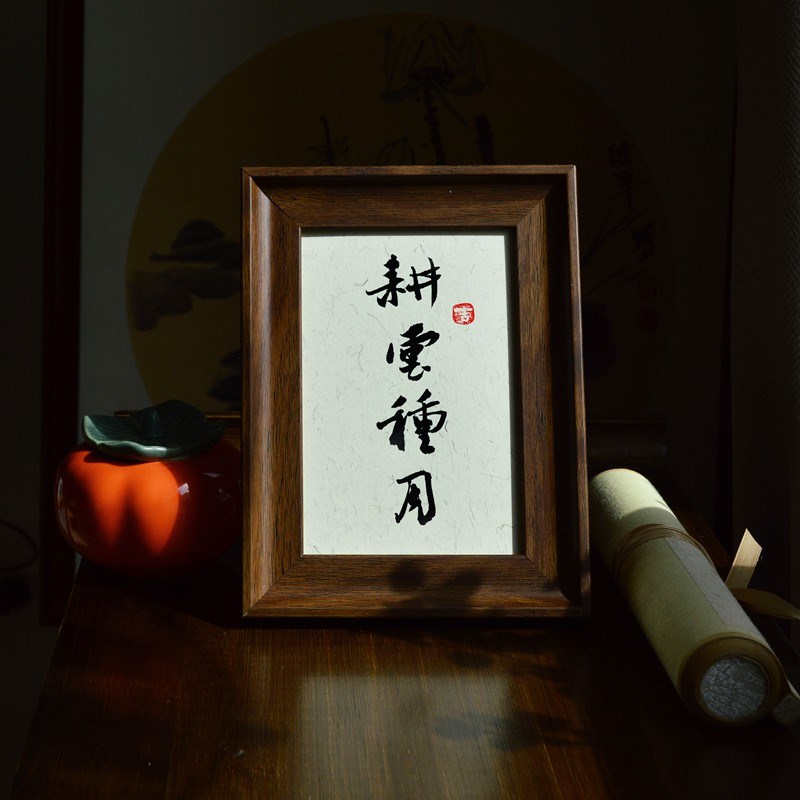 耕雲種月